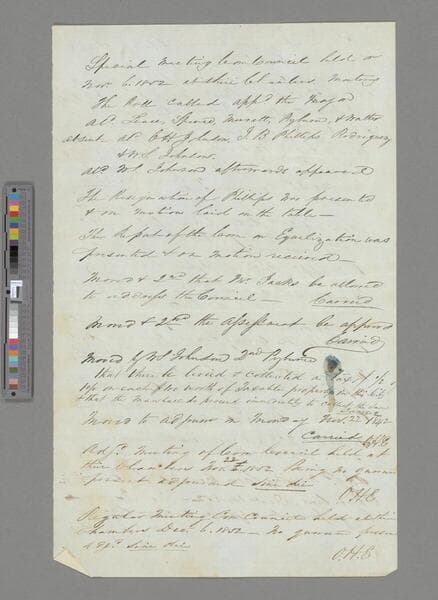 Special Meeting Com Council held on
Nov. 6. 1852 at their Chambers. Meeting
The Roll called appd the Mayor
ald.
absent ald C H Johnson, J. B Phillips Rodriguez
& W S Johnson.
ald W S Johnson afterwards appeared
The Resignation of Phillips was presented
& on motion laid on the table —
The Report of the Com on Equilization was
presented & on motion received —
Moved & 2nd that Mr. Jacks be allowed
to address the Council — Carried
Moved & 2nd the Assessment be approved
Carried
Moved by W S Johnson 2nd
that there be levied & collected a tax of 1/2
on each $100 worth of taxable property in the City
& that the Marshal be
Moved to adjourn on Monday Nov. 22 1852
Carried
Adjd. Meeting of Com Council held at
their Chambers Nov 22nd 1852. Being no quorum
present adjourned sine die
O.H.E
Regular Meeting Com Council held at their
Chambers Dec. 6. 1852 — No quorum present
& adjd. Sine die
O.H.E